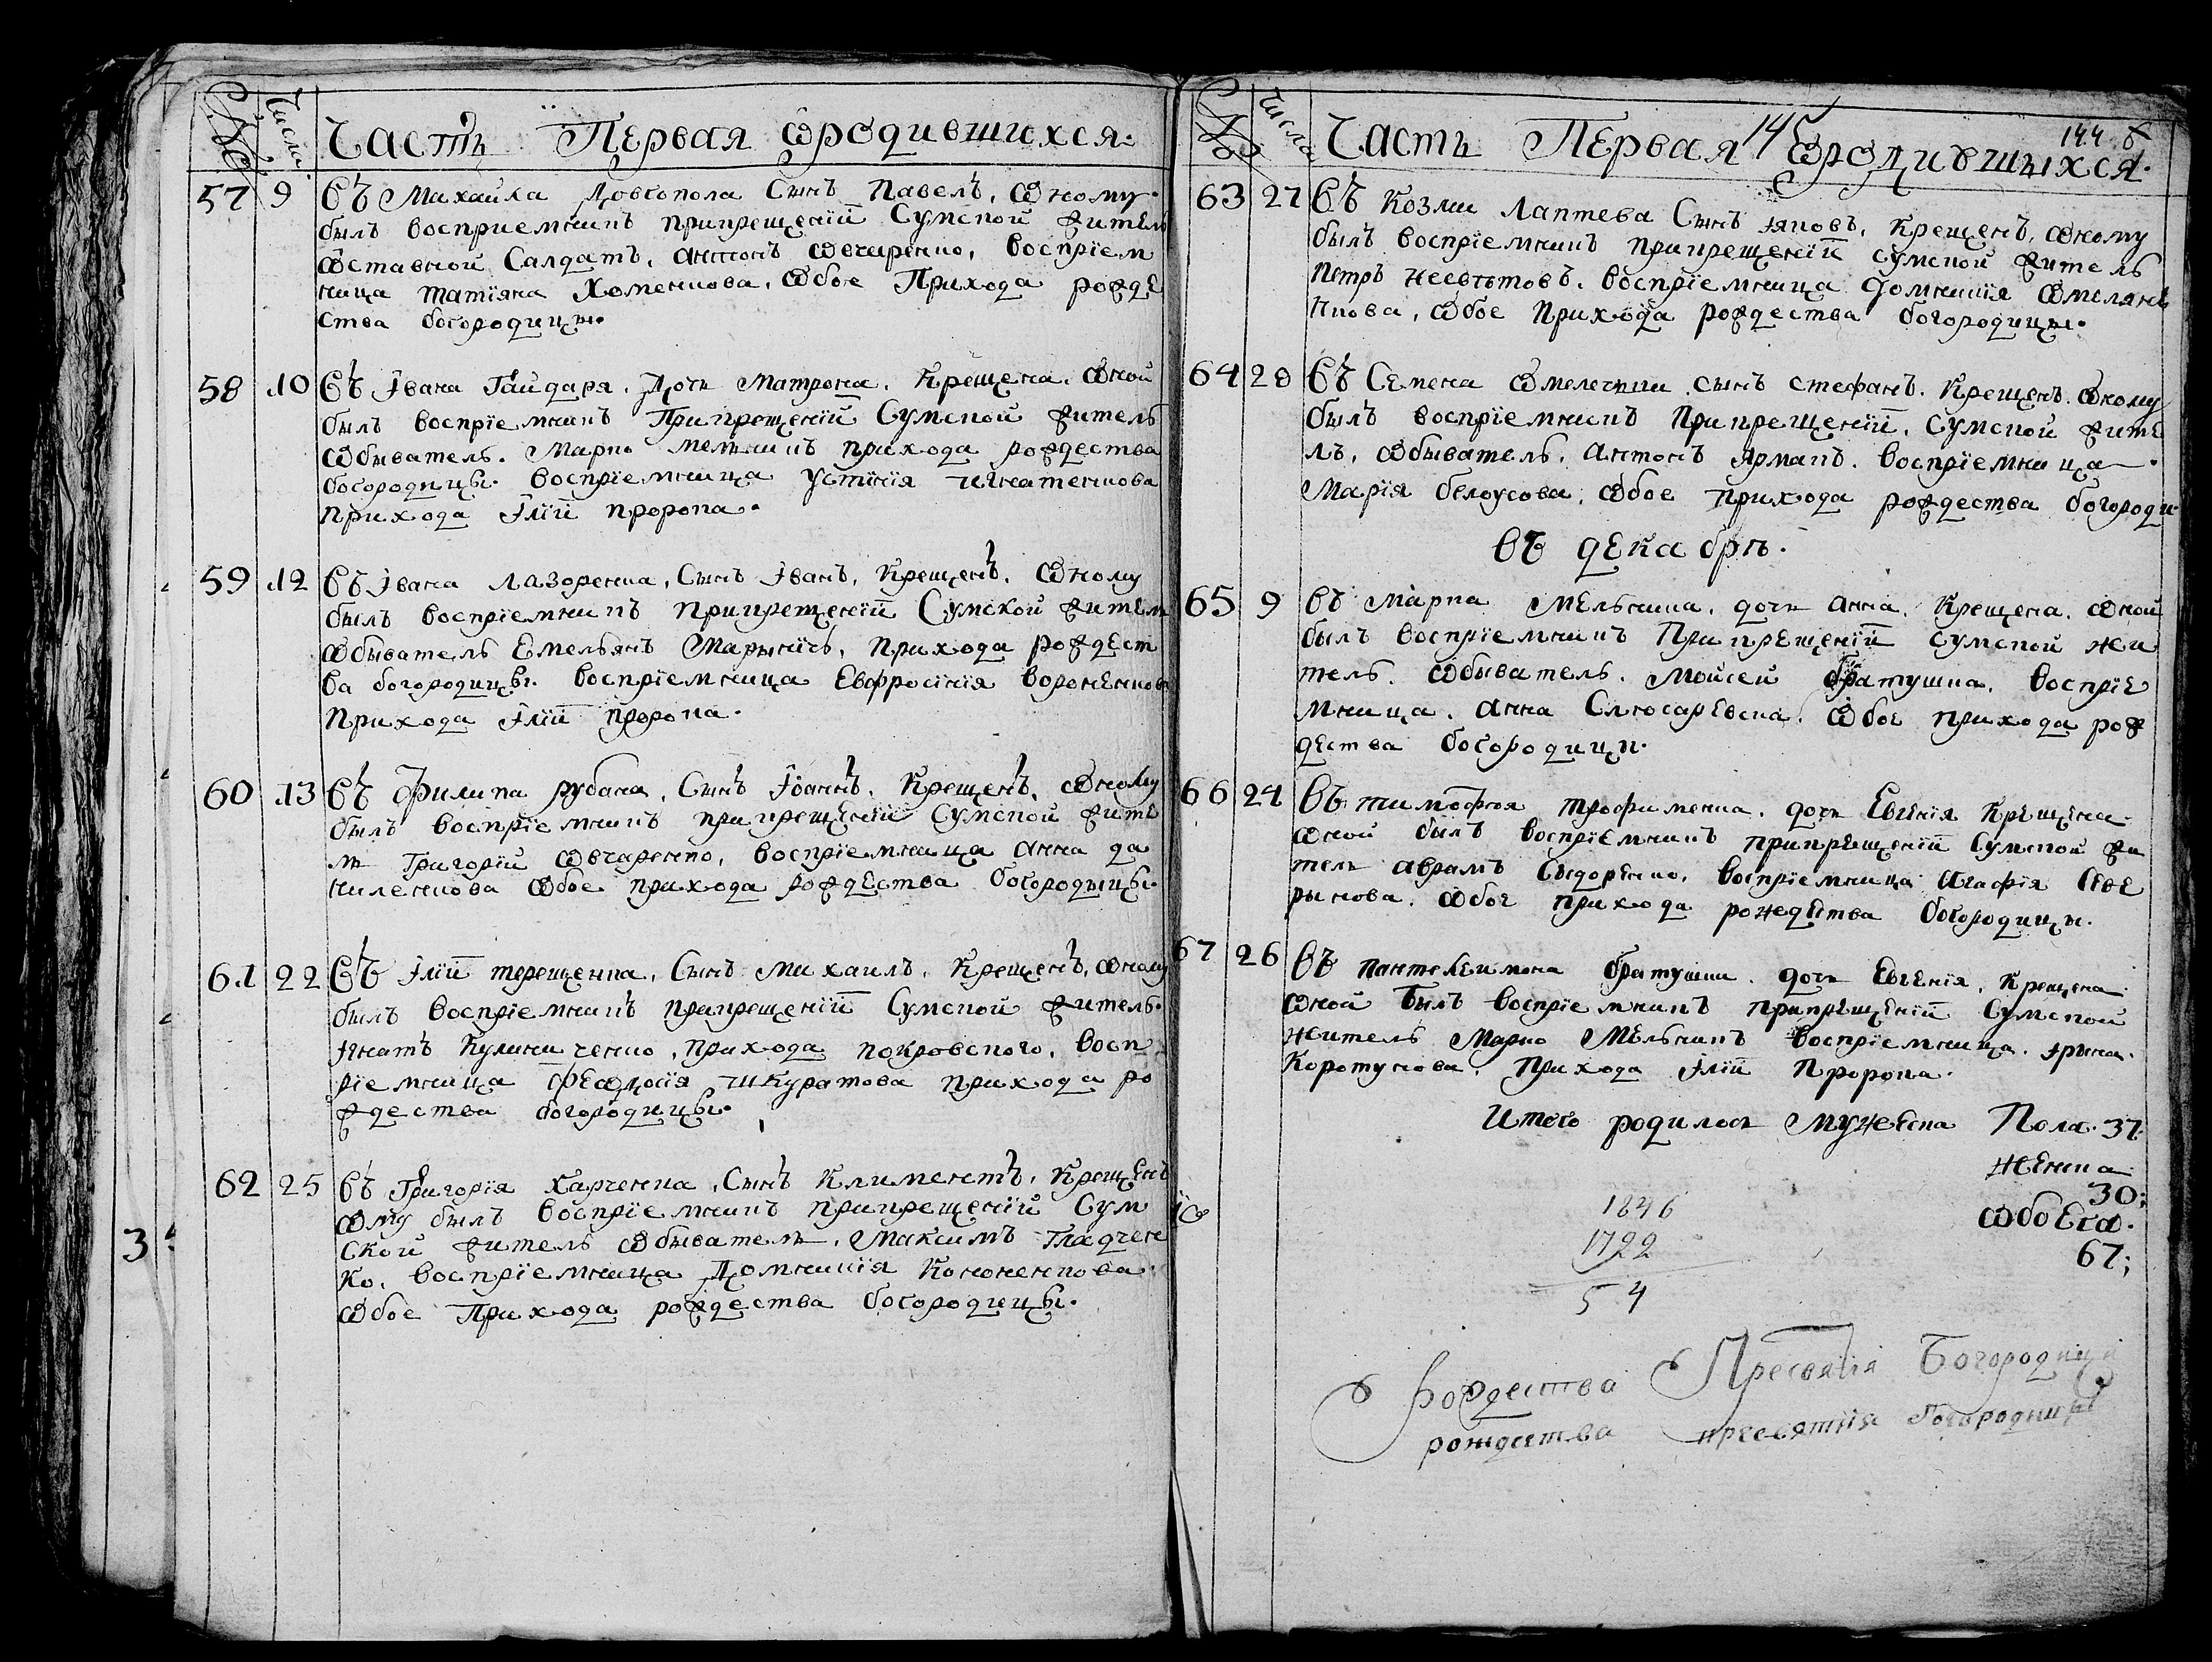 Числа
Часть Первая ѡродившихся.
57 9 Въ Михайла Довгопола Сынъ Павелъ, ѡному
былъ восприемникъ прикрещенїй Сумской житель
ѡставной Салдатъ, Антонъ ѡвчаренко, воспрїем
ница татїяна Хоменкова, ѡбое Прихода рожде
ства богородицы.
58 10 Въ Iвана Гайдаря, Дочь Матрона, Крещена, ѡной
былъ воспрїемникъ Прикрещенїй Сумской житель
ѡбыватель. Марко мельникъ прихода рождества
богородицы. воспрїемница Устїнїя игнатенкова
прихода Iлїй пророка.
59 12 Въ Iвана Лазоренка, Сынъ Iванъ, Крещенъ, ѡному
былъ воспрїемникъ прикрещенїй Сумской жител
ѡбыватель Емельянъ Марыничъ, прихода рождест
ва богородицы. воспрїемница Евфросїнїя вороненкова
Прихода Iлїй пророка.
60 13 Въ Филипа рубана, Сынъ Iоаннъ, Крещенъ, ѡному
былъ воспрїемникъ прикрещенїй Сумской жите
ль Григорїй ѡвчаренко, воспрїемница Анна да
ниленкова ѡбое прихода рождества богородицы.
61 22 Въ Iлїй терещенка, Сынъ Михаилъ, Крещенъ, ѡному
былъ воспрїемникъ прикрещенїй Сумской житель.
Iгнатъ Кулиниченко, прихода покровского, восп
рїемница Феодосїя шкуратова прихода ро
ждества богородицы.
62 25 Въ Григорїя Харченка, Сынъ Климентъ, Крещенъ
ѡму былъ воспрїемникъ прикрещенїй Сум
ской житель ѡбыватель, Максимъ Гладчен
ко, воспрїемница Домникїя Кононенкова
ѡбое Прихода рождества богородицы.
3
Числа
Часть Первая 145 ѡродившыхся. 144 б
63 27 Въ Козми Лаптева Сынъ Iяковъ, Крещенъ, ѡному
былъ воспрїемникъ прикрещенїй сумской житель
петръ неевѣтовъ. воспрїемница домникїя ѡмелянѣ
нкова, ѡбое прихода рождества богородицы.
64 28 Въ Семена ѡмелечки сынъ стефанъ. Крещенъ. ѡному
былъ воспрїемникъ Прикрещенїй, Сумской жите
ль, ѡбыватель, Антонъ Ярмакъ. воспрїемница
Марїя белоусова, ѡбое прихода рождества богороди
Въ декабрѣ.
65 9 Въ марка мельника, дочь анна, Крещена, ѡной
былъ воспрїемникъ Прикрещенїй сумской жи
тель. ѡбыватель. мойсей братушка, воспрїе
мница. анна Слюсаревска, ѡбое прихода рож
дества богородицы.
66 24 Въ тимофея трофименка. дочь Евгенїя Крещена
ѡной былъ воспрїемникъ прикрещенїй Сумской жи
тель аврамъ Сидоренко, воспрїемница Агафїя Севе
рынова. ѡбое прихода рождества богородицы.
67 26 Въ пантелеимона братушки. дочь Евгенїя, Крещена
ѡной былъ воспрїемникъ прикрещенїй Сумской
житель Марко Мельникъ воспрїемница. Iрина.
Коротунова. прихода Iлїй Пророка.
Итого родилось мужеска Пола. 37.
женска
30;
ѡбоего.
67;
1846
1792
54
Рождества Пресвятїя Богородицы
рождества пресвятїя богородицы